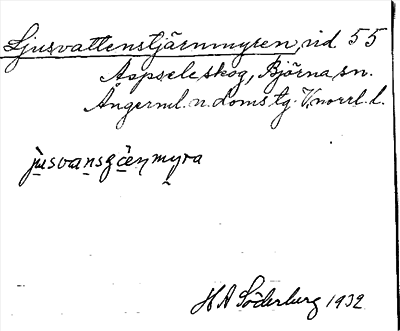 Ljusvattenstjärnmyren, vid 55
Aspsele skog, Björna sn.
Ångerml. n. doms tg. V.norrl. l.
jusvansgäenmyra
H A Söderberg 1932